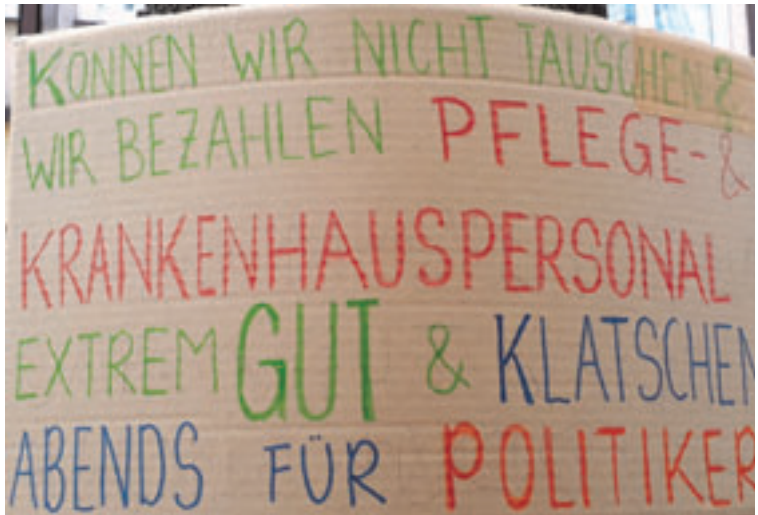 KÖNNEN WIR NICHT TAUSCHEN?
WIR BEZAHLEN PFLEGE-&
KRANKENHAUSPERSONAL
EXTREM GUT & KLATSCHEN
ABENDS FÜR POLITIKER